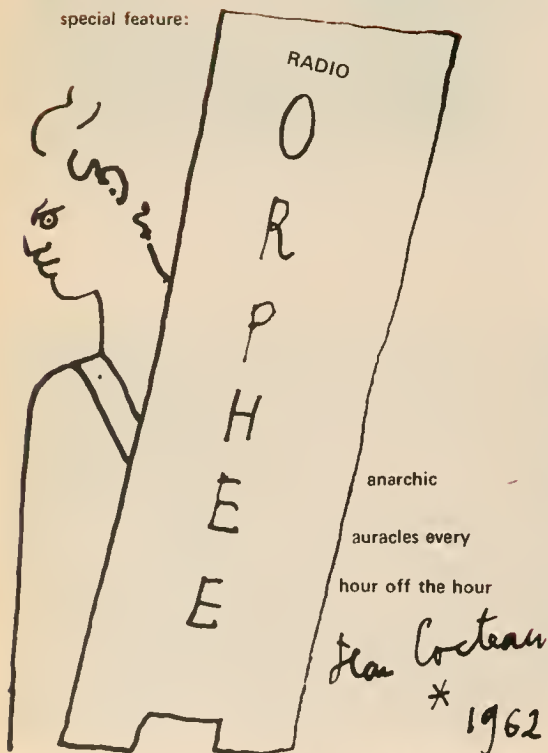 special feature:
RADIO
O
R
P
H
E
E
anarchic
auracles every
hour off the hour
Jean Cocteau
*
1962